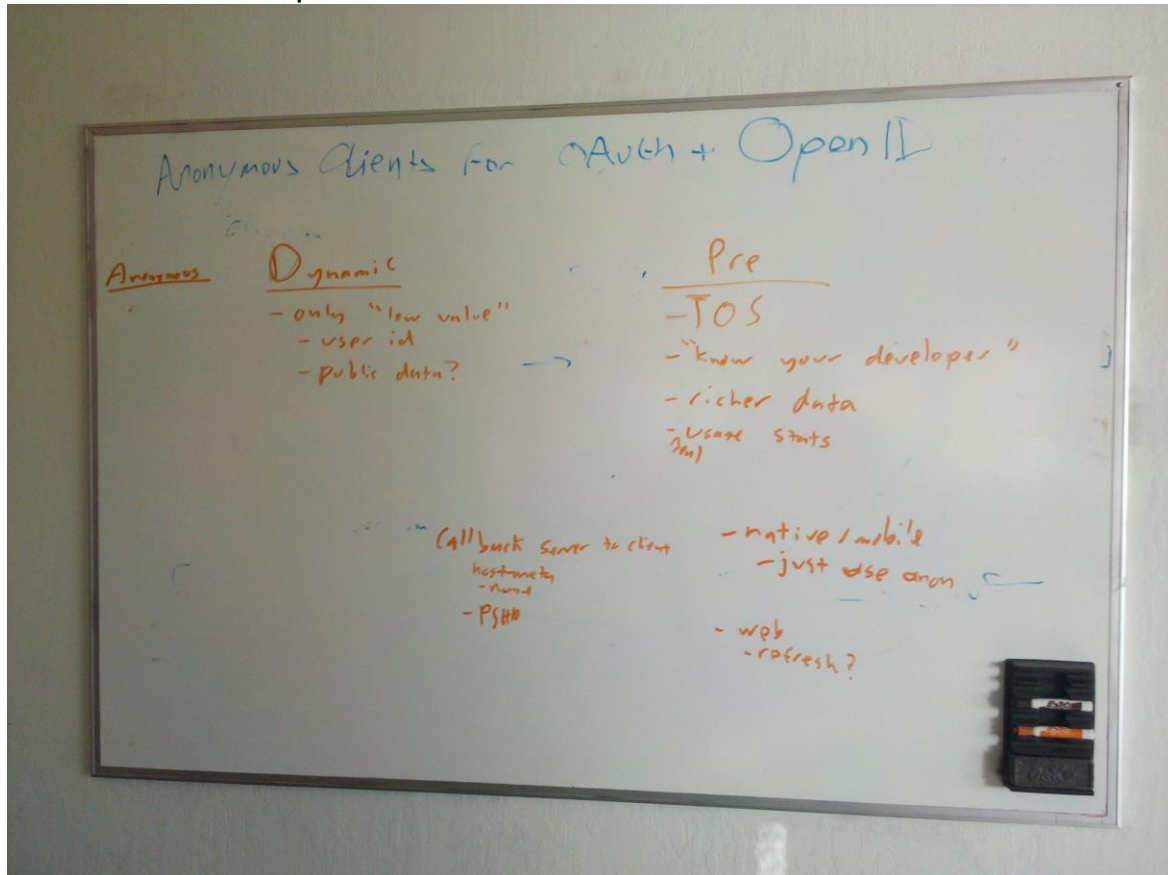 Anonymous Clients For OAuth + OpenID
Anonymous
Dynamic
- only "low value"
- user id
- public data?
Pre
- TOS
- "know your developer"
- richer data
- usage stats
Callback server to client
host-meta
- PSHB
- native/mobile
- just use anon
- web
- refresh?